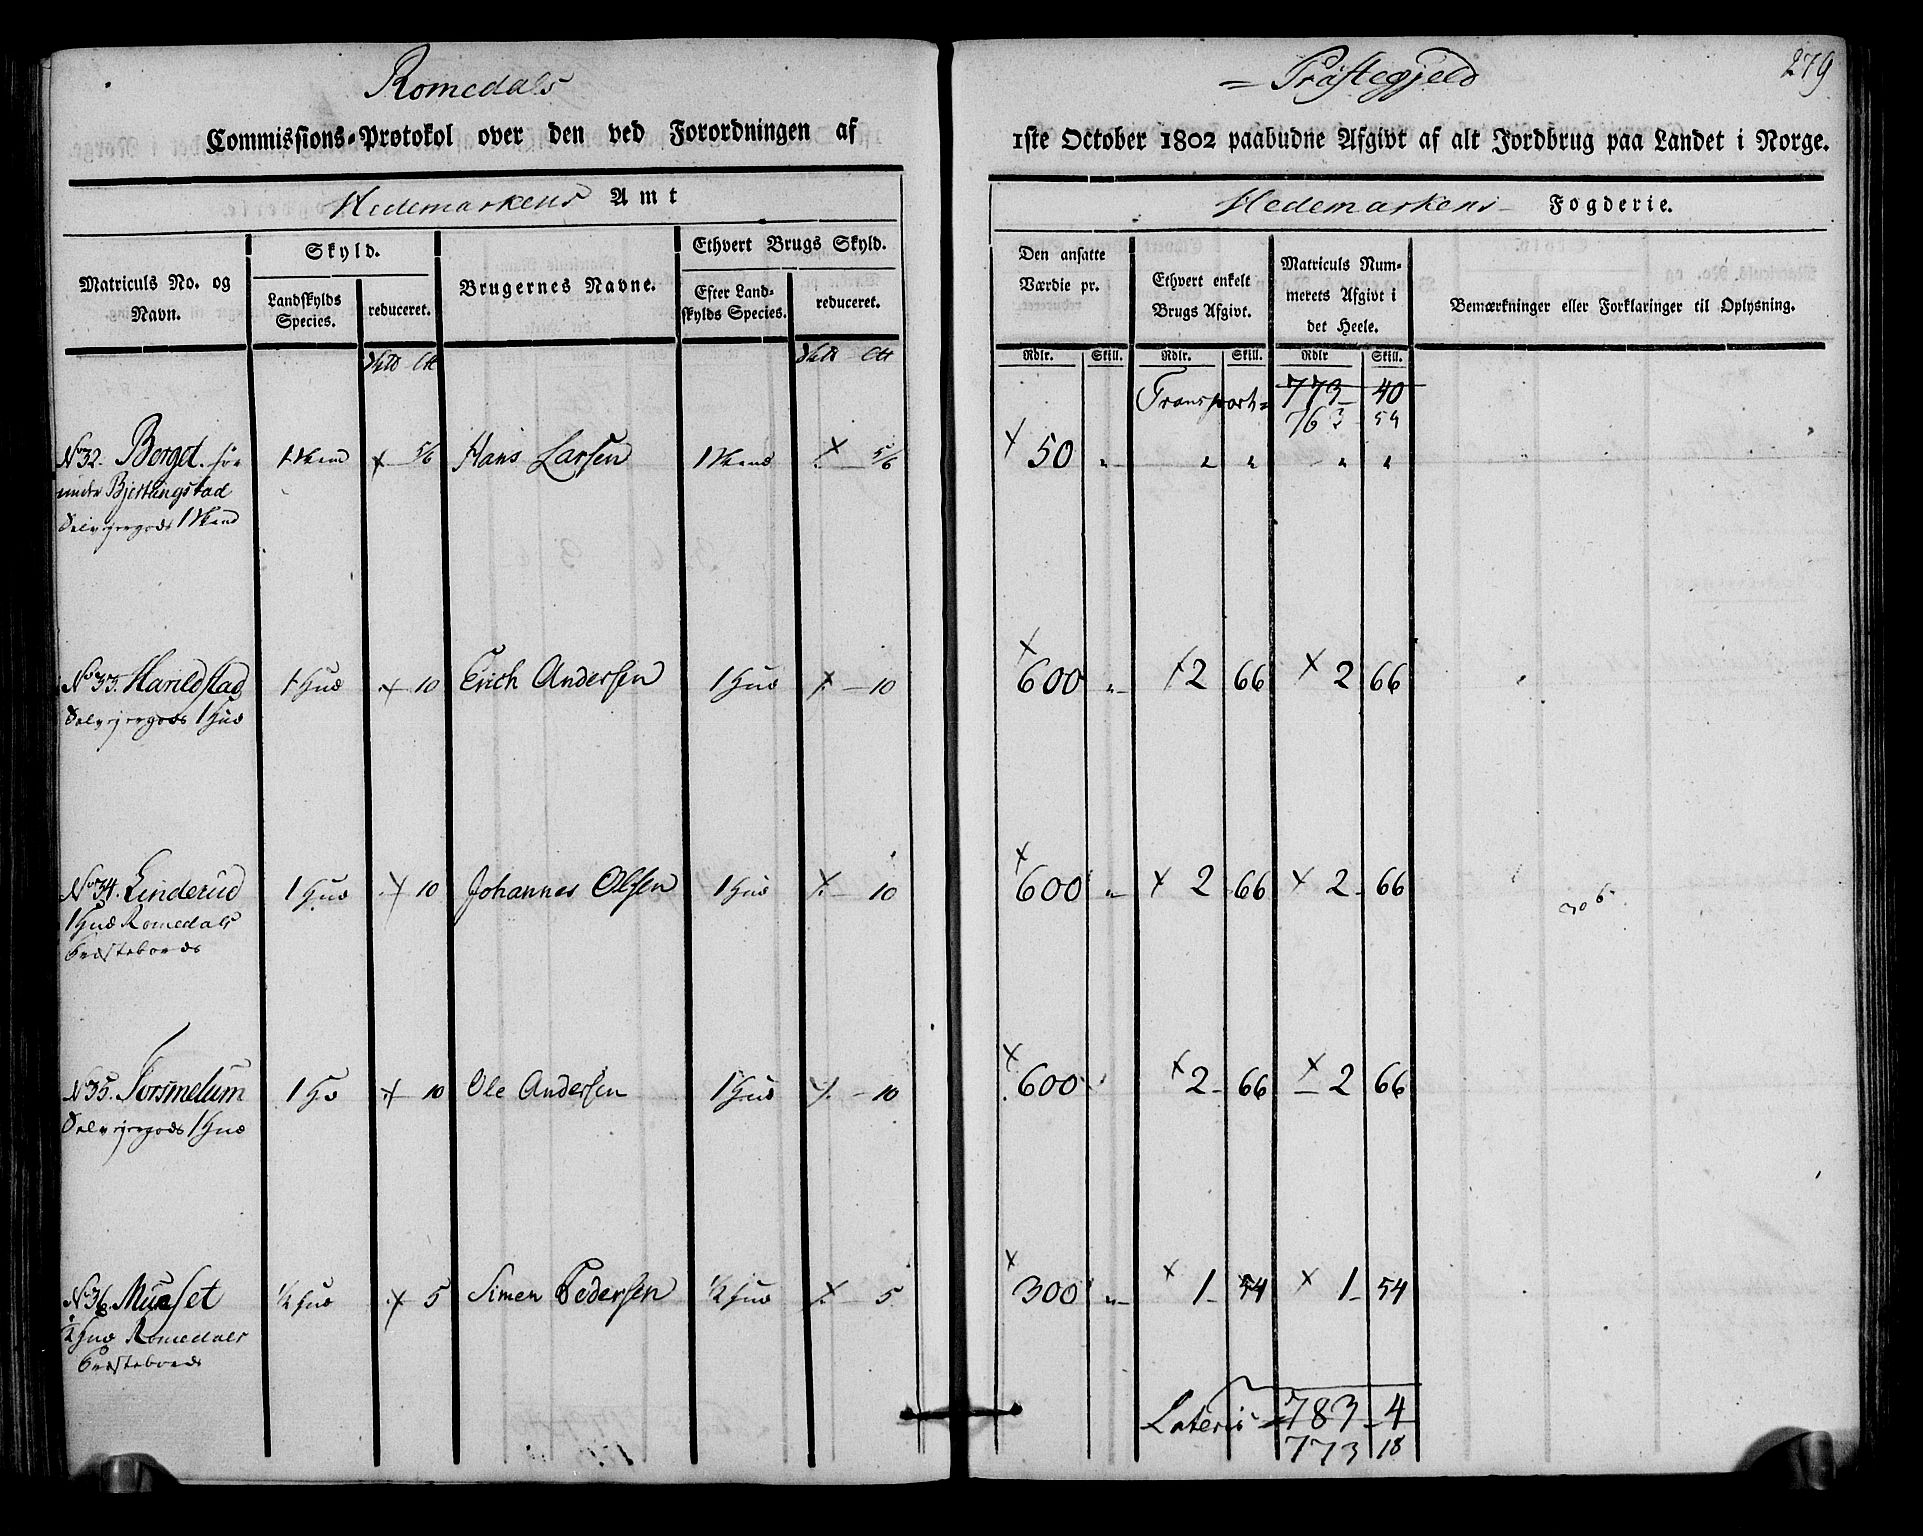 Romedals = Præstegjeld 279
Commissions=Protokol over den ved Forordningen af 1ste October 1802 paabudne Afgivt af alt Jordbrug paa Landet i Norge.
Hedemarkens Amt Hedemarkens Fogderie.
Matriculs No. og Navn.
Skyld.
Landskylds Species.
reduceret.
Brugernes Navne.
Ethvert Brugs Skyld.
Efter Land=skylds Species.
reduceret.
Den ansatte Værdie pr.
Ethvert enkelt Brugs Afgivt.
Matriculs Num=merets Afgivt i det Heele.
Bemærkninger eller Forklaringer til Oplysning.
Rdlr. Skill. Rdlr. Skill. Rdlr Skill.
Transport= 773 40
763 54
No 32. Berget 5/6 Hans Larsen 5/6 50 " " " " "
under Bjertingstad
Selvejergods
No 33. Harildstad 1 Hud 10 Erich Andersen 1 Hud 10 600 " 2 66 2 66
Selvejergods 1 Hud
No 34. Linderud 1 Hud 10 Johannes Olsen 1 Hud 10 600 " 2 66 2 66
1 Hud Romedals
Præstebords
No 35. Torsmelum 1 Hd 10 Ole Andersen 1 Hud 10 600 2 66 2 66
Selvejergods 1 Hud
No 36. Musset 1/2 Hud 5 Simen Pedersen 1/2 Hud 5 300 " 1 54 1 54
1/2 Hud Romedals
Præstebords
Lateris 783 4
773 18